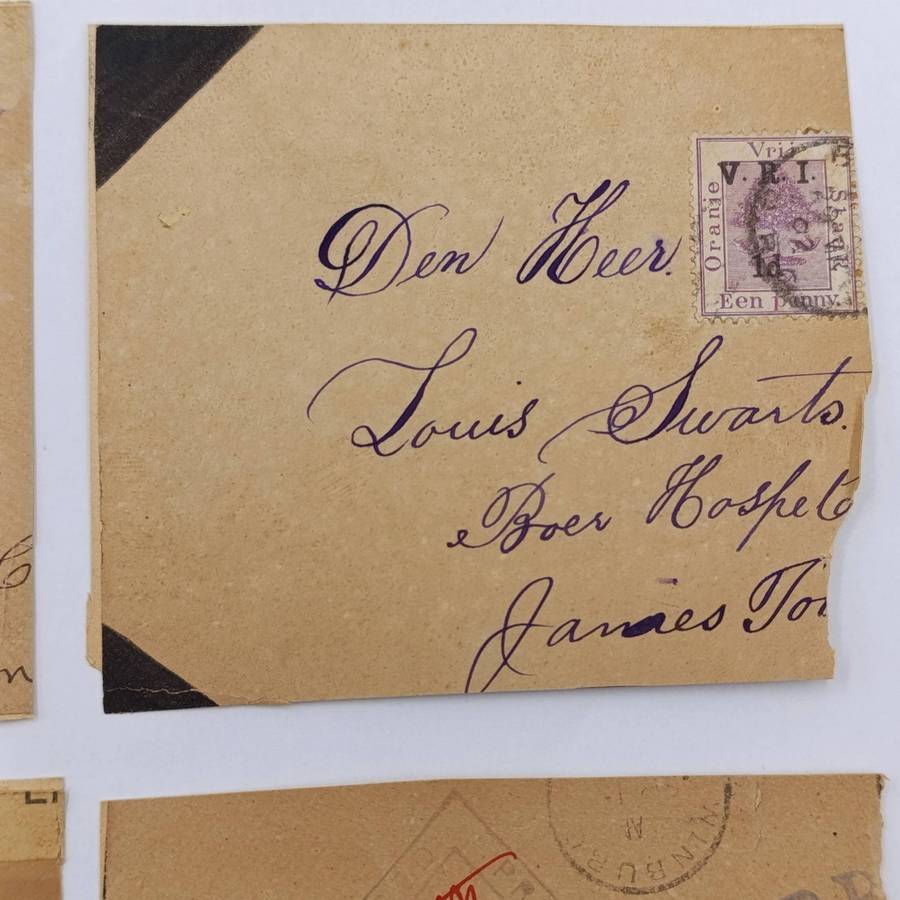 Vrij
V. R. I.
Oranje
Staat
1d
Een penny.
Den Heer.
Louis Swarts.
Boer Hospeta
James To
WINBURG